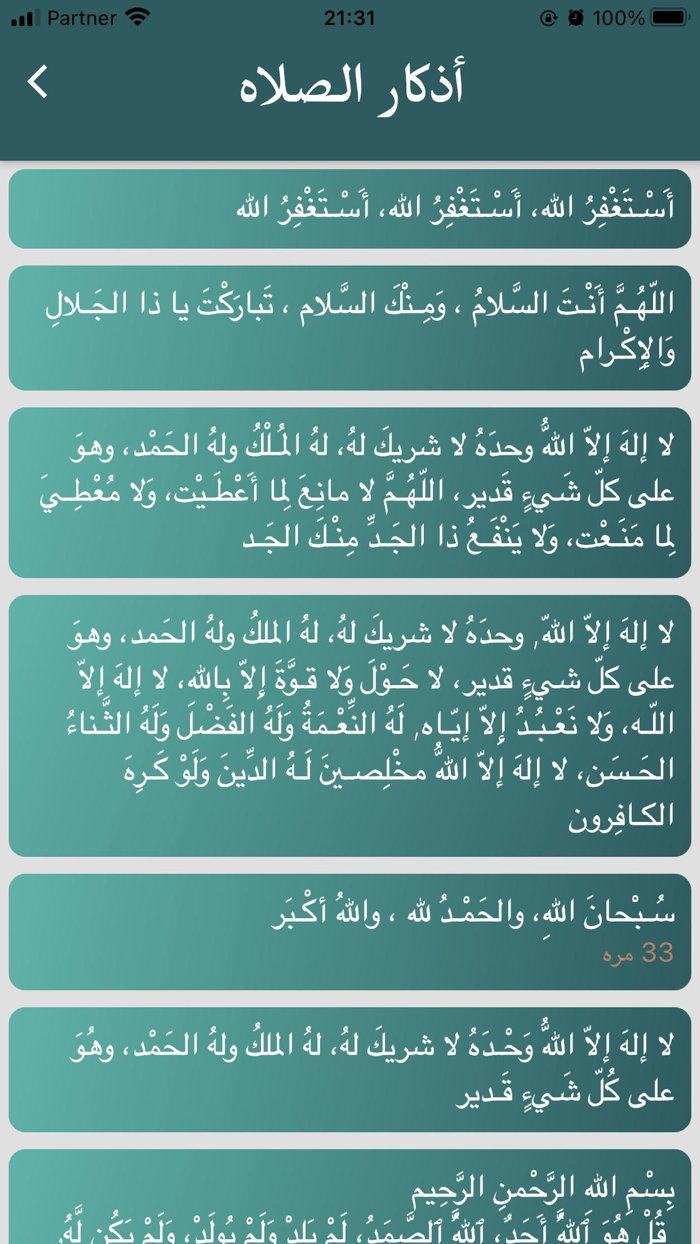 Partner 21:31 100%
أذكار الصلاه
أَسْـتَغْفِرُ الله، أَسْـتَغْفِرُ الله، أَسْـتَغْفِرُ الله
اللّهُـمَّ أَنْـتَ السَّلامُ ، وَمِـنْكَ السَّلام ، تَبارَكْتَ يا ذا الجَـلالِ
وَالإِكْـرام
لا إلهَ إلاّ اللهُ وحدَهُ لا شريكَ لهُ، لهُ المُـلْكُ ولهُ الحَمْد، وهوَ
على كلّ شَـيءٍ قَدير، اللّهُـمَّ لا مانِعَ لِما أَعْطَـيْت، وَلا مُعْطِـيَ
لِما مَنَـعْت، وَلا يَنْفَـعُ ذا الجَـدِّ مِنْـكَ الجَـد
لا إلهَ إلاّ اللهُ, وحدَهُ لا شريكَ لهُ، لهُ الملكُ ولهُ الحَمد، وهوَ
على كلّ شـيءٍ قدير، لا حَـوْلَ وَلا قـوَّةَ إِلاّ بِالله، لا إلهَ إلاّ
اللـه، وَلا نَعْـبُـدُ إِلاّ إيّـاه, لَهُ النِّعْـمَةُ وَلَهُ الفَضْل وَلَهُ الثَّـناءُ
الحَـسَن، لا إلهَ إلاّ اللهُ مخْلِصـينَ لَـهُ الدِّينَ وَلَوْ كَـرِهَ
الكـافِرون
سُـبْحانَ اللهِ، والحَمْـدُ لله ، واللهُ أكْـبَر
33 مره
لا إلهَ إلاّ اللهُ وَحْـدَهُ لا شريكَ لهُ، لهُ الملكُ ولهُ الحَمْد، وهُوَ
على كُلّ شَـيءٍ قَـدير
بِسْمِ اللهِ الرَّحْمنِ الرَّحِيم
قُلْ هُوَ ٱللَّهُ أَحَدٌ، ٱللَّهُ ٱلصَّمَدُ، لَمْ يَلِدْ وَلَمْ يُولَدْ، وَلَمْ يَكُن لَّهُۥ